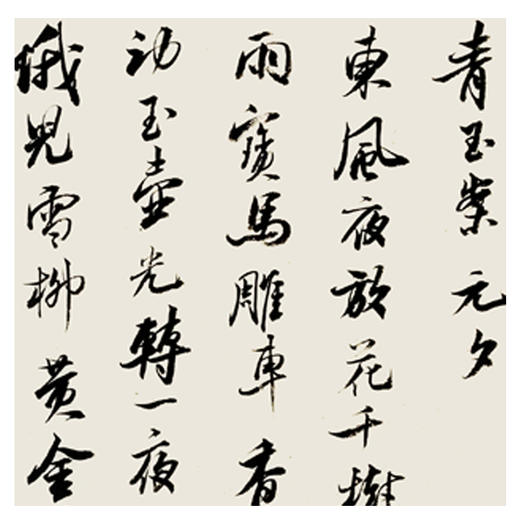 青玉案元夕
東風夜放花千樹
雨寶馬雕車香
動玉壺光轉一夜
蛾兒雪柳黄金